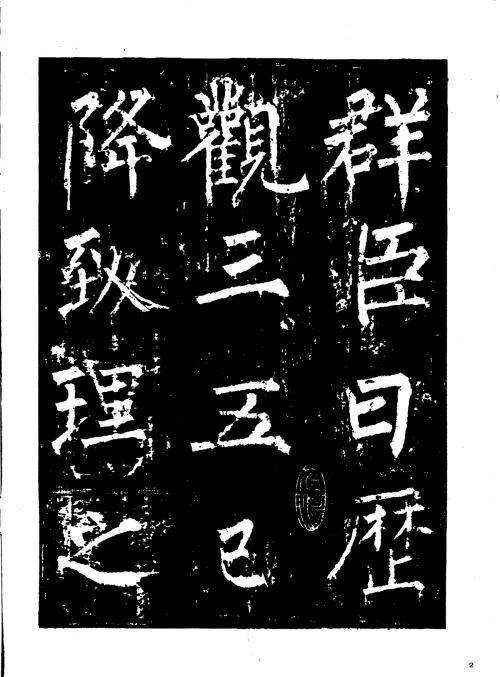 群臣曰歴
觀三五已
降致理之
2